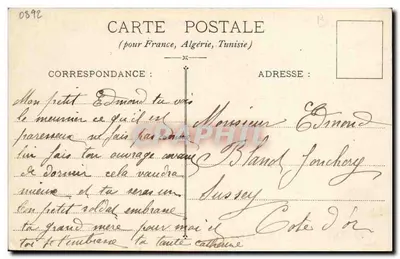 0892
CARTE POSTALE
(pour France, Algérie, Tunisie)
CORRESPONDANCE :
ADRESSE :
Mon petit Edmond tu vois
le meunier ce qu'il est
paresseux ne fais pas
lui fais ton ouvrage avant
de dormir cela vaudra
mieux et tu seras un
bon petit soldat embrasse
ta grand mere pour moi
toi je t'embrasse ta tante catherine
Monsieur Edmond
Blanot
Sussey
Cote d'or